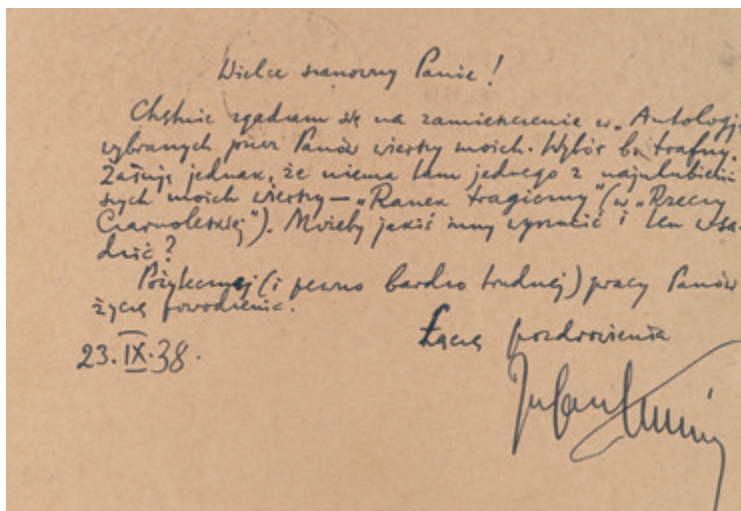 Wielce szanowny Panie!
Chętnie zgadzam się na zamieszczenie w „Antologji
wybranych przez Panów wierszy moich. Wybór b. trafny.
Żałuję jednak, że niema tam jednego z najulubień
szych moich wierszy — „Ranek tragiczny" (w „Rzeczy
Czarnoleskiej"). Możeby jakiś inny wyrzucić i ten wsa-
dzić?
Pożytecznej (i pewno bardzo trudnej) pracy Panów
życzę powodzenia.
Łączę pozdrowienia
23.IX.38.
Julian Tuwim